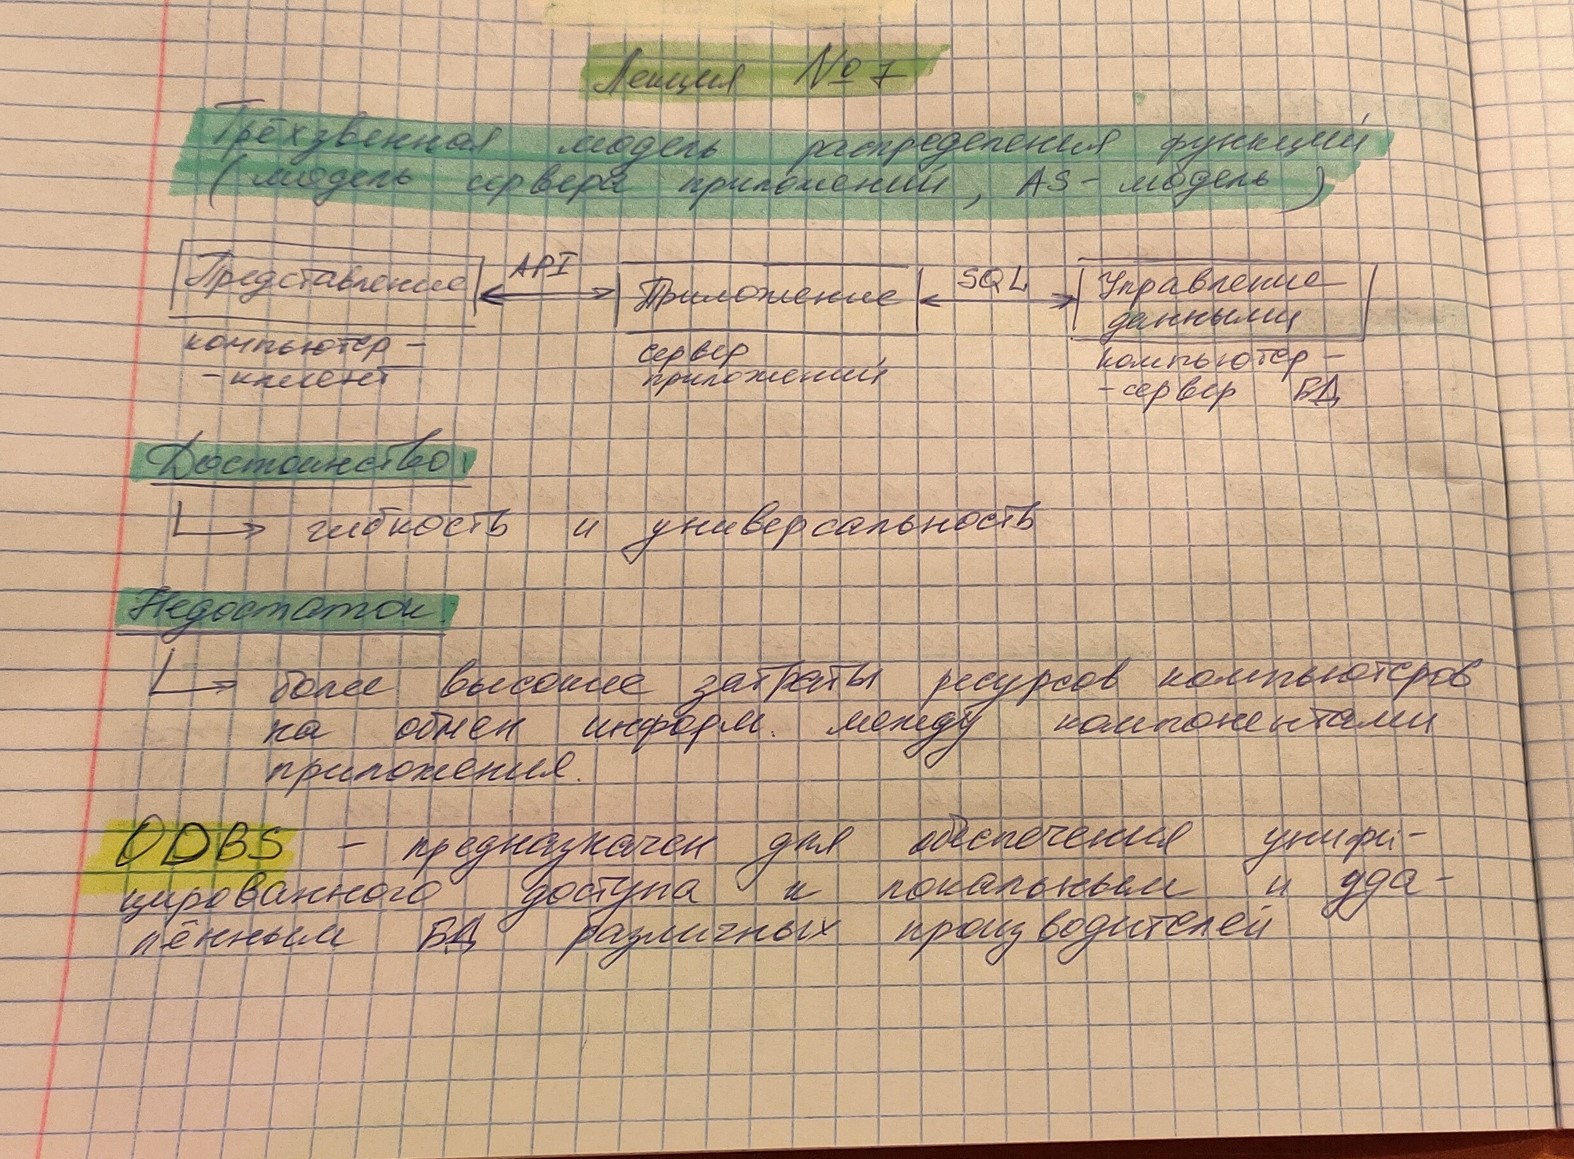 Лекция №7
Трёхзвенная модель распределения функций
(модель сервера приложений, AS-модель)
Представление API Приложение SQL Управление
данными
компьютер-
-клиент
сервер
приложений
компьютер-
-сервер БД
Достоинство:
гибкость и универсальность
Недостаток:
более высокие затраты ресурсов компьютеров
на обмен информ. между компонентами
приложения.
ODBS - предназначен для обеспечения унифи-
цированного доступа к локальным и уда-
лённым БД различных производителей